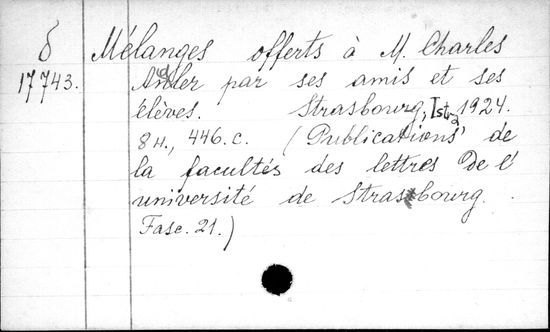 δ Mélanges offerts à M. Charles
17743. Andler par ses amis et ses
élèves. Strasbourg, Istra, 1924.
8 н., 446. c. (Publications de
la facultés des lettres de l'
université de Strasbourg.
Fasc. 21.)